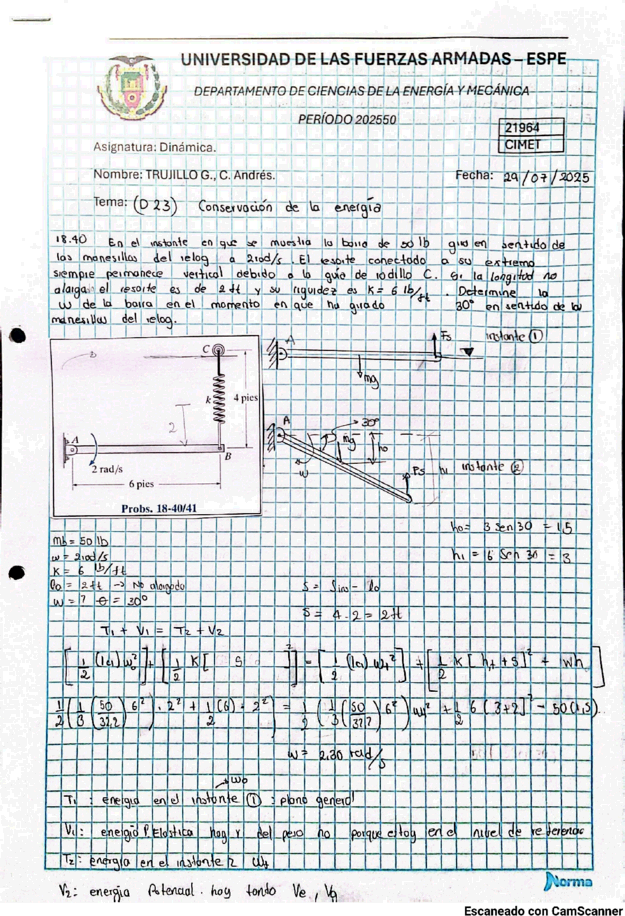 UNIVERSIDAD DE LAS FUERZAS ARMADAS – ESPE
DEPARTAMENTO DE CIENCIAS DE LA ENERGÍA Y MECÁNICA
PERÍODO 202550
21964
CIMET
Asignatura: Dinámica.
Nombre: TRUJILLO G., C. Andrés.
Fecha: 29/07/2025
Tema: (D23) Conservación de la energía
18.40 En el instante en que se muestra la barra de 50 lb gira en sentido de
las manesillas del relog a 2rad/s. El resorte conectado a su extremo
siempre permanece vertical debido a la guía de rodillo C. Si la longitud no
alarga el resorte es de 2 ft y su rigudez es K = 6 lb/ft. Determine la
ω de la barra en el momento en que ha girado 30° en sentido de la
manesillas del relog.
C
k
4 pies
2
A
B
2 rad/s
6 pies
Probs. 18-40/41
A
Fs
instante ①
mg
A
30°
mg
ho
h1
ω
Fs
instante ②
ho = 3 sen 30 = 1,5
h1 = 6 Sen 30 = 3
mb = 50 lb
ω = 2rad/s
K = 6 lb/ft
lo = 2ft → No alargado
ω = ? θ = 30°
S = Sino - lo
S = 4 - 2 = 2ft
T1 + V1 = T2 + V2
[1/2 (Ia) ωo²] + [1/2 K [ S ]²] = [1/2 (Ia) ωf²] + [1/2 K [h1 + S]² + Wh]
1/2 (1/3 (50/32,2) 6²) · 2² + 1/2 (6) · 2² = 1/2 (1/3 (50/32,2) 6²) ωf² + 1/2 6 (3+2)² - 50(1,5)
ω = 2,30 rad/s
→ ωo
T1 : energia en el instante ① : plano general
V1: energía P. Elastica hay y del peso no porque estoy en el nivel de referencia
T2: energía en el instante 2 ωf
V2: energia Potencial. hay tanto Ve, Vg
Norma
Escaneado con CamScanner